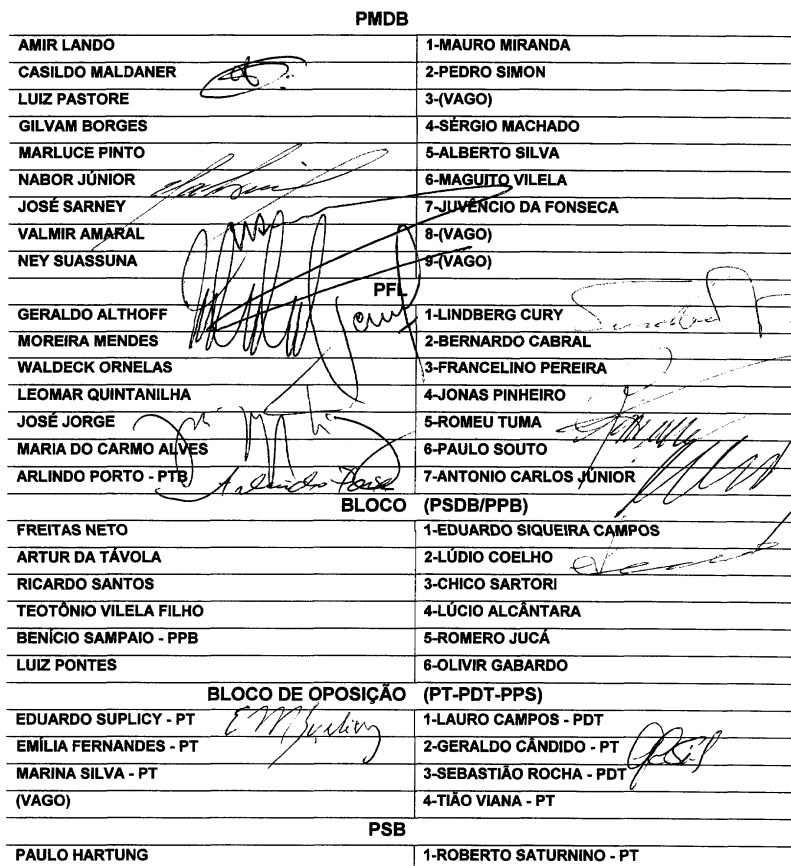 PMDB
AMIR LANDO 1-MAURO MIRANDA
CASILDO MALDANER 2-PEDRO SIMON
LUIZ PASTORE 3-(VAGO)
GILVAM BORGES 4-SÉRGIO MACHADO
MARLUCE PINTO 5-ALBERTO SILVA
NABOR JÚNIOR 6-MAGUITO VILELA
JOSÉ SARNEY 7-JUVÊNCIO DA FONSECA
VALMIR AMARAL 8-(VAGO)
NEY SUASSUNA 9-(VAGO)
PFL
GERALDO ALTHOFF 1-LINDBERG CURY
MOREIRA MENDES 2-BERNARDO CABRAL
WALDECK ORNELAS 3-FRANCELINO PEREIRA
LEOMAR QUINTANILHA 4-JONAS PINHEIRO
JOSÉ JORGE 5-ROMEU TUMA
MARIA DO CARMO ALVES 6-PAULO SOUTO
ARLINDO PORTO - PTB 7-ANTONIO CARLOS JÚNIOR
BLOCO (PSDB/PPB)
FREITAS NETO 1-EDUARDO SIQUEIRA CAMPOS
ARTUR DA TÁVOLA 2-LÚDIO COELHO
RICARDO SANTOS 3-CHICO SARTORI
TEOTÔNIO VILELA FILHO 4-LÚCIO ALCÂNTARA
BENÍCIO SAMPAIO - PPB 5-ROMERO JUCÁ
LUIZ PONTES 6-OLIVIR GABARDO
BLOCO DE OPOSIÇÃO (PT-PDT-PPS)
EDUARDO SUPLICY - PT 1-LAURO CAMPOS - PDT
EMÍLIA FERNANDES - PT 2-GERALDO CÂNDIDO - PT
MARINA SILVA - PT 3-SEBASTIÃO ROCHA - PDT
(VAGO) 4-TIÃO VIANA - PT
PSB
PAULO HARTUNG 1-ROBERTO SATURNINO - PT